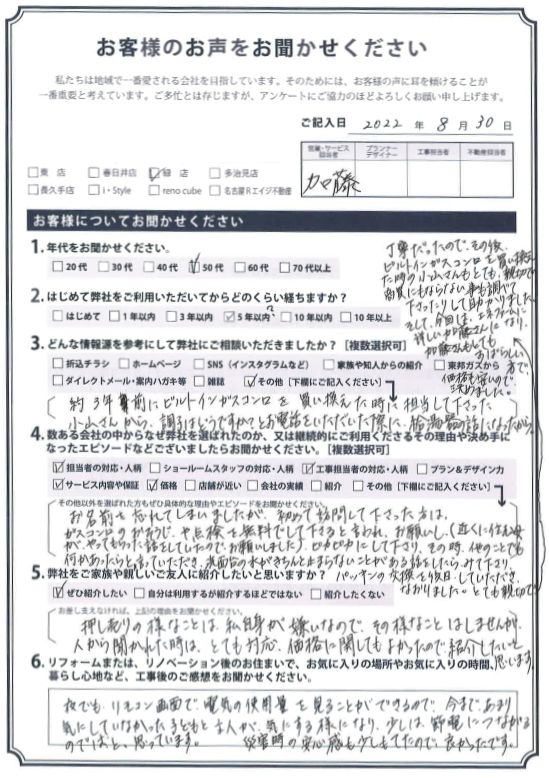 お客様のお声をお聞かせください
私たちは地域で一番愛される会社を目指しています。そのためには、お客様の声に耳を傾けることが
一番重要と考えています。ご多忙とは存じますが、アンケートにご協力のほどよろしくお願い申し上げます。
ご記入日 2022 年 8 月 30 日
営業・サービス担当者 プランナーデザイナー 工事担当者 不動産担当者
加藤
東店 春日井店 緑店 多治見店
長久手店 i・Style reno cube 名古屋Rエイジ不動産
お客様についてお聞かせください
1. 年代をお聞かせください。
20代 30代 40代 50代 60代 70代以上
2. はじめて弊社をご利用いただいてからどのくらい経ちますか？
はじめて 1年以内 3年以内 5年以内? 10年以内 10年以上
丁寧だったので、その後、
ビルトインガスコンロを買い換え
た時の小山さんもとても、親切で
商買にもならない事も調べて
下さったりして助かりました。
そして、今回は、エネファームに
詳しい加藤さんになり、
加藤さんもとても
すばらしい方で、
価格も安いので
決めました。
3. どんな情報源を参考にして弊社にご相談いただきましたか？［複数選択可］
折込チラシ ホームページ SNS（インスタグラムなど） 家族や知人からの紹介 東邦ガスから
ダイレクトメール・案内ハガキ等 雑誌 その他［下欄にご記入ください］
約3年前にビルトインガスコンロを買い換えた時に担当して下さった
小山さんから、調子はどうですか？とお電話をいただいた際に、給湯器の話になったから。
4. 数ある会社の中からなぜ弊社を選ばれたのか、又は継続的にご利用くださるその理由や決め手に
なったエピソードなどございましたらお聞かせください。［複数選択可］
担当者の対応・人柄 ショールームスタッフの対応・人柄 工事担当者の対応・人柄 プラン&デザイン力
サービス内容や保証 価格 店舗が近い 会社の実績 紹介 その他［下欄にご記入ください］
その他以外を選ばれた方もぜひ具体的な理由やエピソードをお聞かせください。
お名前を忘れてしまいましたが、初めて訪問して下さった方は、
ガスコンロのおそうじ、や点検を無料でして下さると言われ、お願いし、（近くに住む母
がやってもらった話をしていたのでお願いしました）ピカピカにして下さり、その時、他のことでも
何かあったらと言っていただき、洗面台の水がきちんと止まらないことがある話をしたらみて下さり、
パッキンの交換を後日していただき、
なおりました。とても親切で
5. 弊社をご家族や親しいご友人に紹介したいと思いますか？
ぜひ紹介したい 自分は利用するが紹介するほどではない 紹介したくない
お差し支えなければ、上記の理由をお聞かせください。
押し売りの様なことは、私自身が嫌いなので、その様なことはしませんが、
人から聞かれた時は、とても対応、価格に関してもよかったので紹介したいと
思います。
6. リフォームまたは、リノベーション後のお住まいで、お気に入りの場所やお気に入りの時間、
暮らし心地など、工事後のご感想をお聞かせください。
夜でも、リモコン画面で、電気の使用量を見ることができるので、今まで、あまり
気にしていなかった子どもと主人が、気にする様になり、少しは、節電につながる
のではと、思っています。 災害時の安心感も少しもてたので、良かったです。